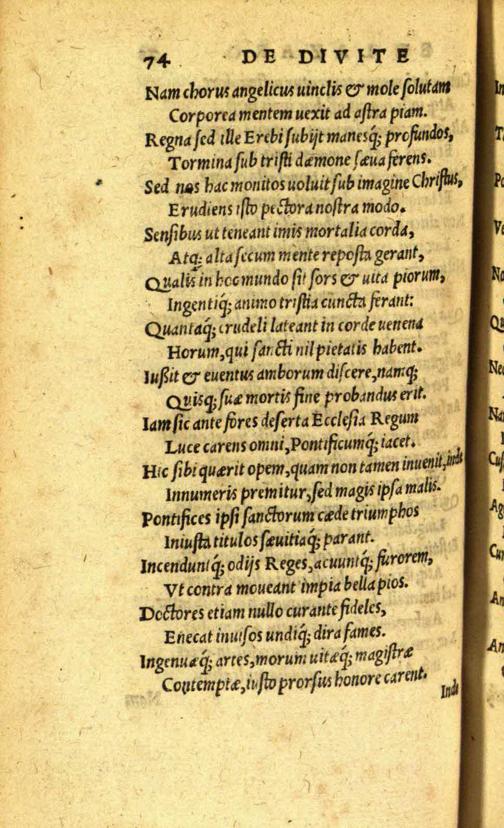 74 DE DIVITE
Nam chorus angelicus uinclis & mole solutam
Corporea mentem uexit ad astra piam.
Regna sed ille Erebi subijt manesq́; profundos,
Tormina sub tristi dæmone sæua ferens.
Sed nos hac monitos uoluit sub imagine Christus,
Erudiens isto pectora nostra modo.
Sensibus ut teneant imis mortalia corda,
Atq; alta secum mente reposta gerant,
Qualis in hoc mundo sit sors & uita piorum,
Ingentiq́; animo tristia cuncta ferant:
Quantaq́; crudeli lateant in corde uenena
Horum, qui sancti nil pietatis habent.
Iußit & euentus amborum discere, namq;
Quisq; suæ mortis fine probandus erit.
Iam sic ante fores deserta Ecclesia Regum
Luce carens omni, Pontificumq́; iacet.
Hic sibi quærit opem, quam non tamen inuenit, inde
Innumeris premitur, sed magis ipsa malis.
Pontifices ipsi sanctorum cæde triumphos
Iniusta titulos sæuitiaq́; parant.
Incenduntq́; odijs Reges, acuuntq́; furorem,
Vt contra moueant impia bella pios.
Doctores etiam nullo curante fideles,
Enecat inuisos undiq́; dira fames.
Ingenuæq́; artes, morum uitæq́; magistræ
Contemptæ, iusto prorsus honore carent.
Inde